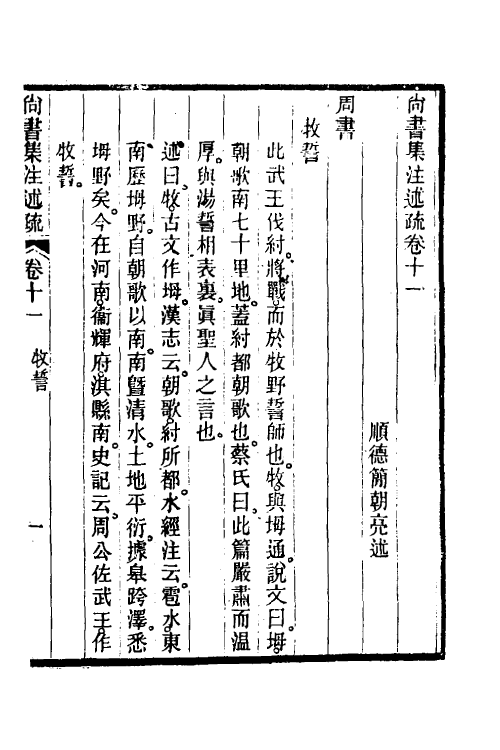 尚書集注述疏卷十一
順德簡朝亮述
周書
牧誓
此武王伐紂將戰而於牧野誓師也。牧與坶通說文曰坶。
朝歌南七十里地。蓋紂都朝歌也。蔡氏曰此篇嚴肅而溫
厚。與湯誓相表裏。眞聖人之言也。
述曰。牧。古文作坶。漢志云。朝歌紂所都。水經注云。雹水。東
南歷坶野。自朝歌以南。南曁清水。土地平衍。據皋跨澤。悉
坶野矣。今在河南衞輝府。淇縣南。史記云。周公佐武王。作
牧誓。
尚書集注述疏 卷十一 牧誓 一